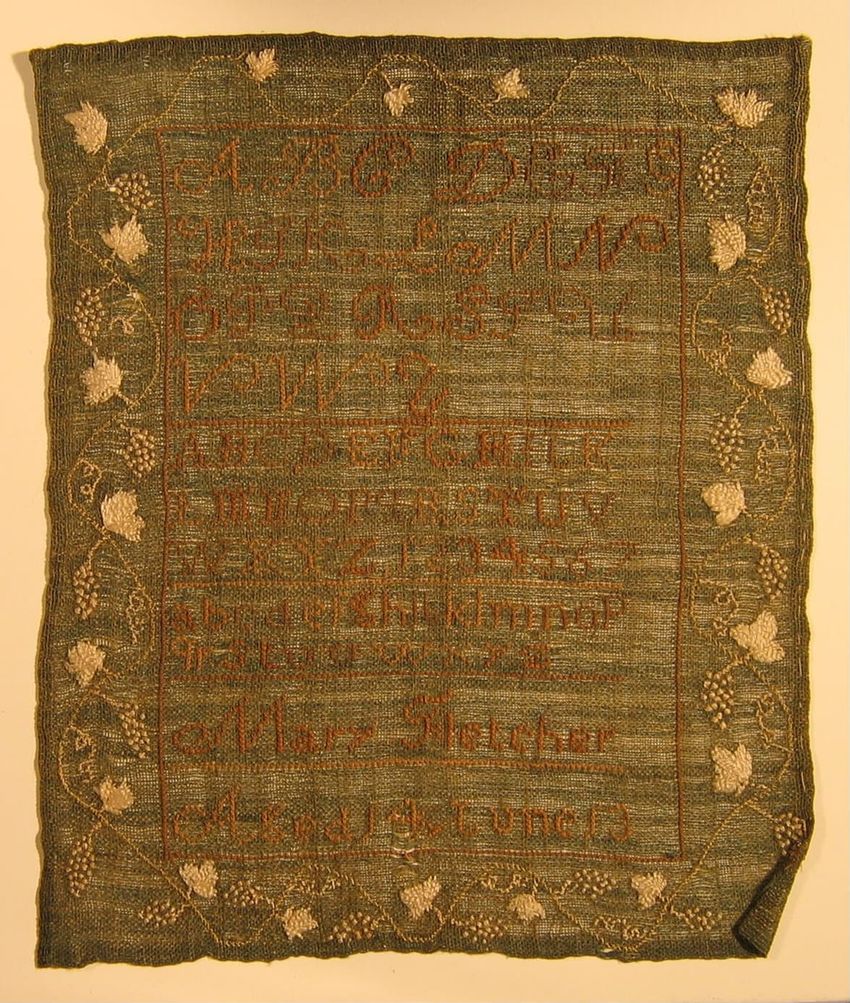 A B C D E F G
H I K L M N
O P Q R S T U
V W Y
A B C D E F G H I K
L M N O P Q R S T U V
W X Y Z 1 2 3 4 5 6 7
a b c d e f g h i k l m n o p
q r s t u v w x y z
Mary Fletcher
Aged 14 June 13